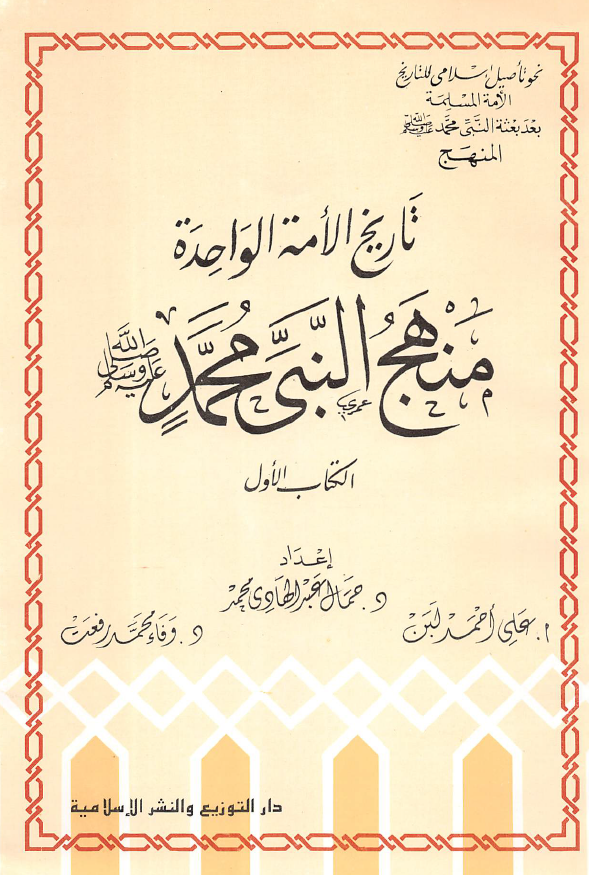 نحو تأصيل إسلامى للتاريخ
الأمة المسلمة
بعد بعثة النبى محمد ﷺ
المنهج
تاريخ الأمة الواحدة
مَنهَجُ النَّبىِّ مُحمَّدٍ صلى الله عليه وسلم
عمري
الكتاب الأول
إعداد
د. جمال عبد الهادى محمد
أ. على أحمد لبن
د. وفاء محمد رفعت
دار التوزيع والنشر الإسلامية